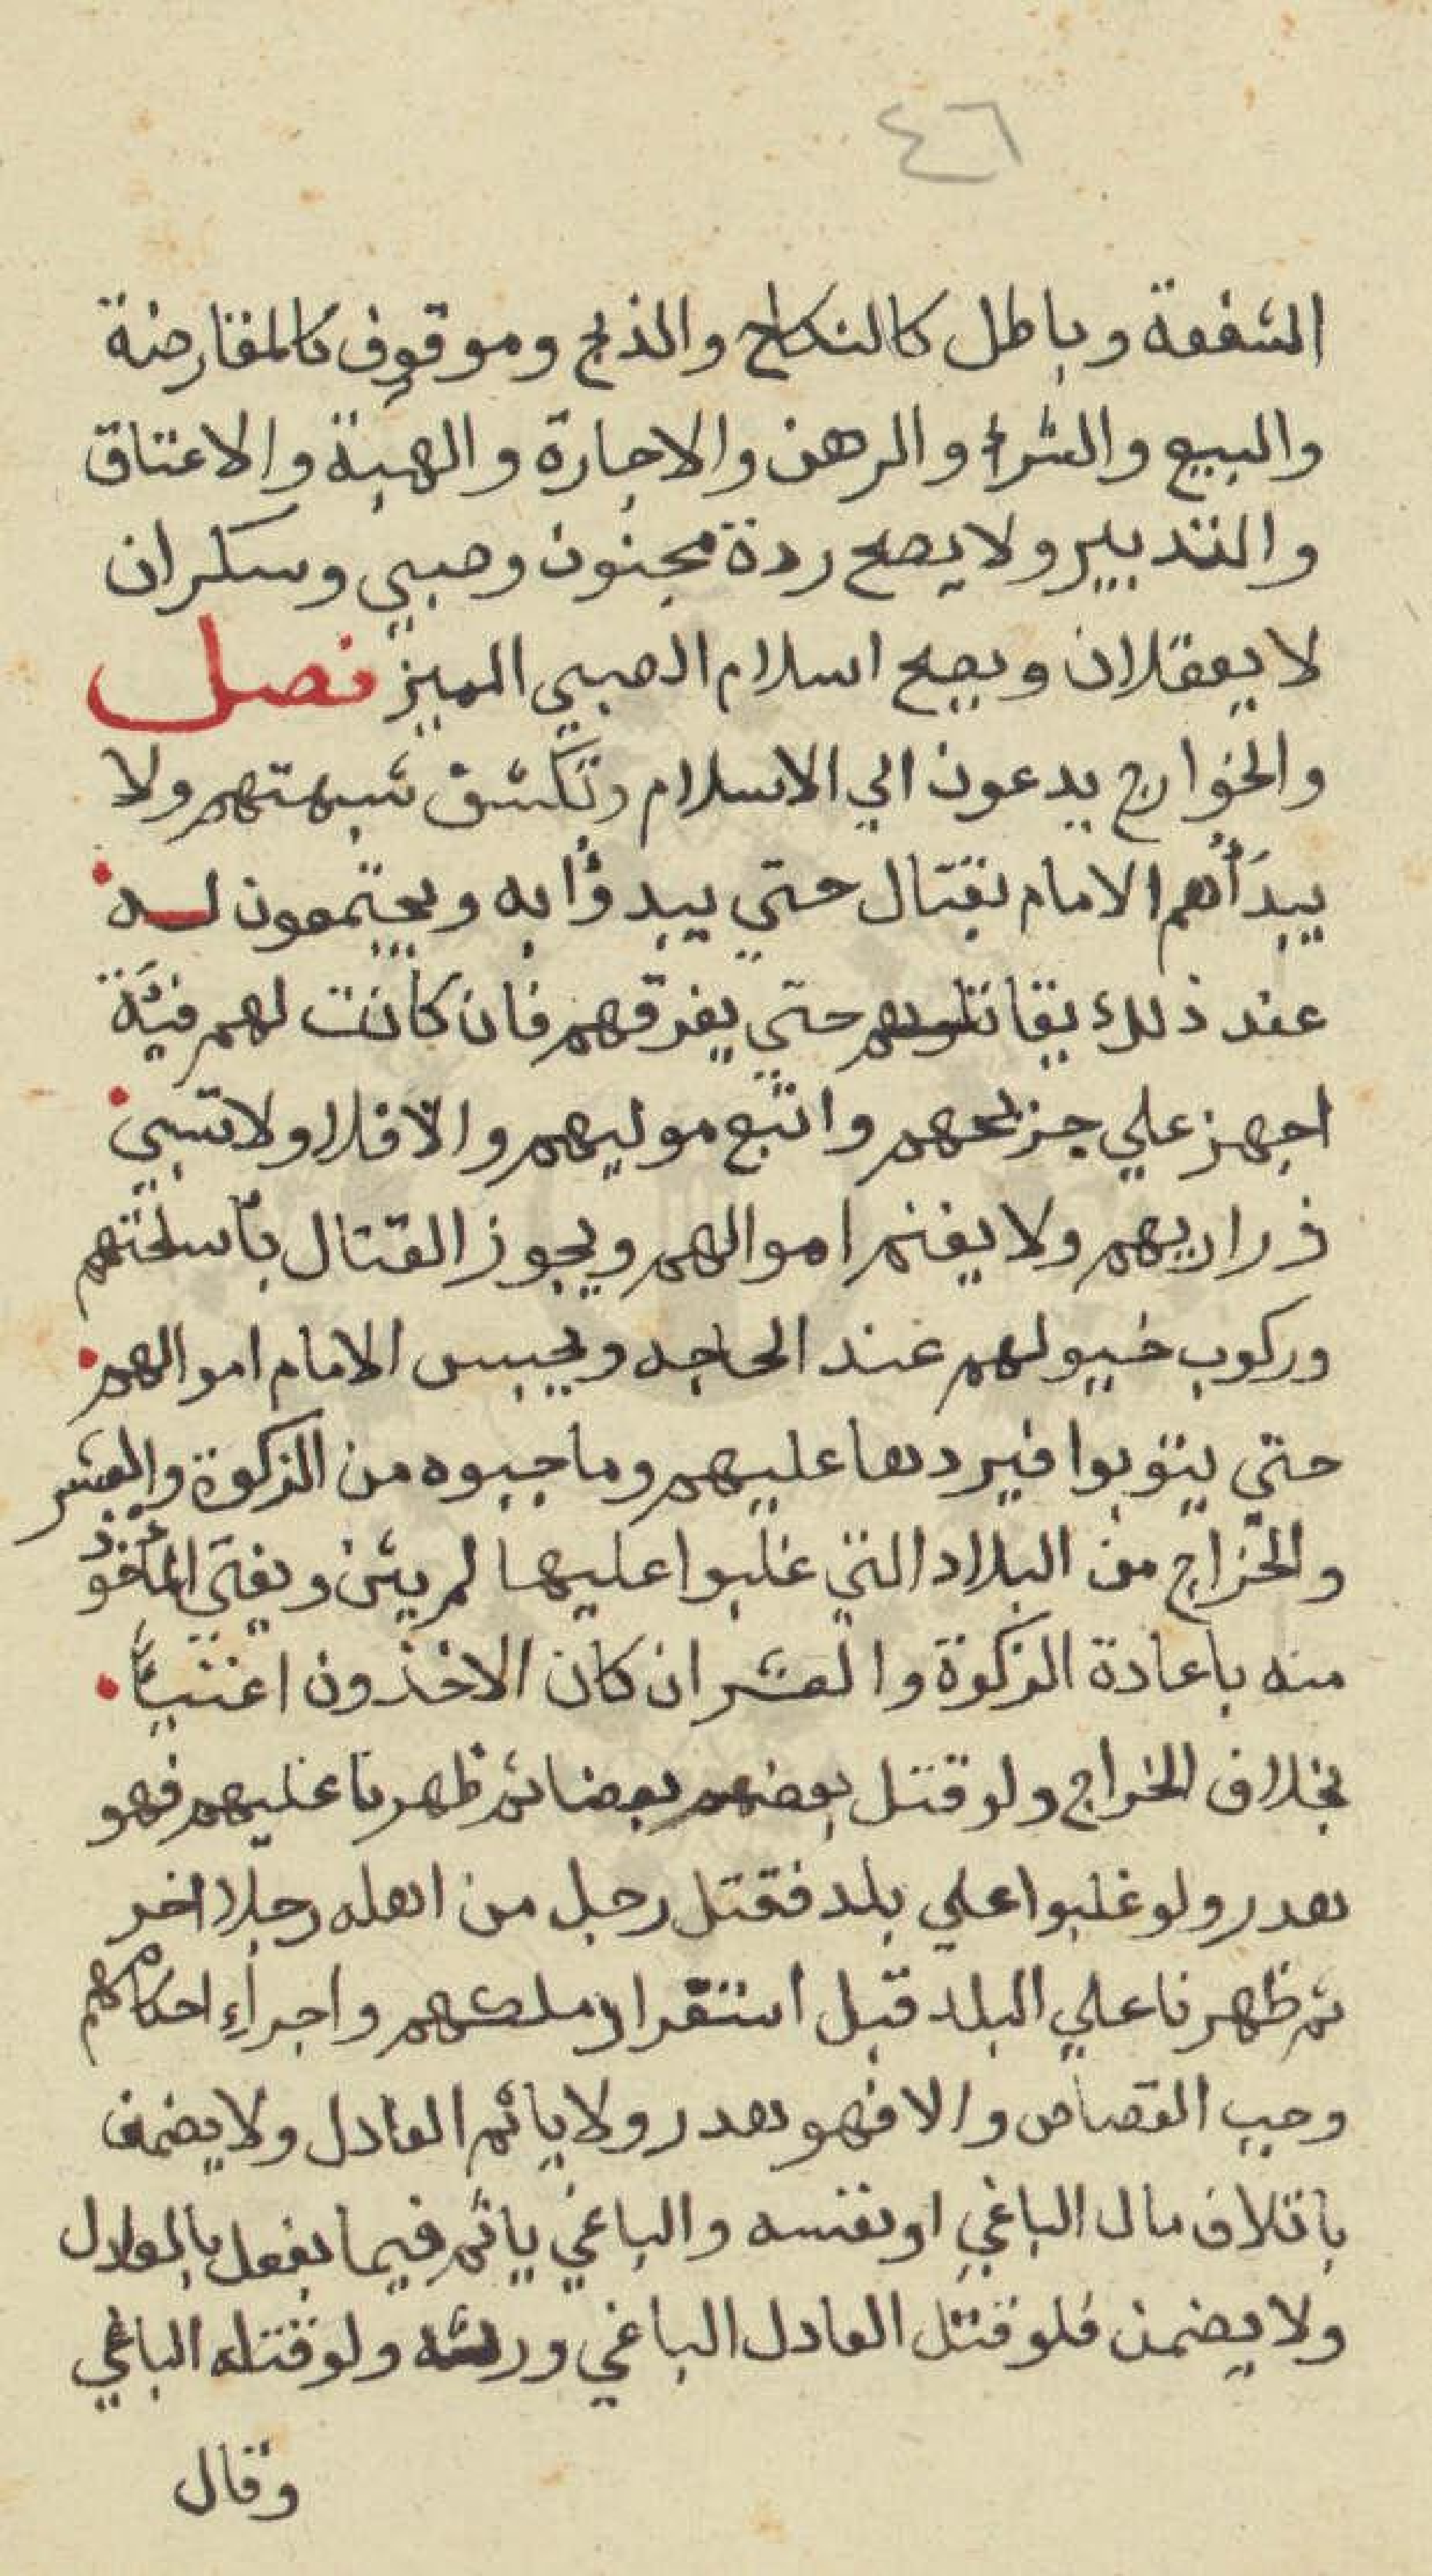 ٤٦
الشفعة وباطل كالنكاح والذبح وموقوف كالمفارضة
والبيع والشراء والرهن والاجارة والهبة والاعتاق
والتدبير ولا يصح ردة مجنون وصبي وسكران
لا يعقلان ويصح اسلام الصبي المميز فصل
والخوارج يدعون الي الاسلام وتكشف شبهتهم ولا
يبدَأُهم الامام بقتال حتي يبدؤا به ويجتمعون له
عند ذلك يقاتلهم حتي يفرقهم فان كانت لهم فئة
اجهز علي جريحهم واتبع موليهم والا فلا ولا تسبي
ذراريهم ولا يغنم اموالهم ويجوز القتال باسلحتهم
وركوب خيولهم عند الحاجه ويحبس الامام اموالهم
حتي يتوبوا فيردها عليهم وما جبوه من الزكوة والعشر
والخراج من البلاد التي غلبوا عليها لم يثن ويفتي المأخوذ
منه باعادة الزكوة والعشر ان كان الاخذون اغنياء
بخلاف الخراج ولو قتل بعضهم بعضا ثم ظهرنا عليهم فهو
هدر ولو غلبوا علي بلد فقتل رجل من اهله رجلا اخر
ثم ظهرنا علي البلد قبل استقرار ملكهم واجراءِ احكامهم
وجب القصاص والا فهو هدر ولا ياثم العادل ولا يضمن
باتلاف مال الباغي او نفسه والباغي ياثم فيما يفعل بالعادل
ولا يضمن فلو قتل العادل الباغي ورثه ولو قتله الباغي
وقال